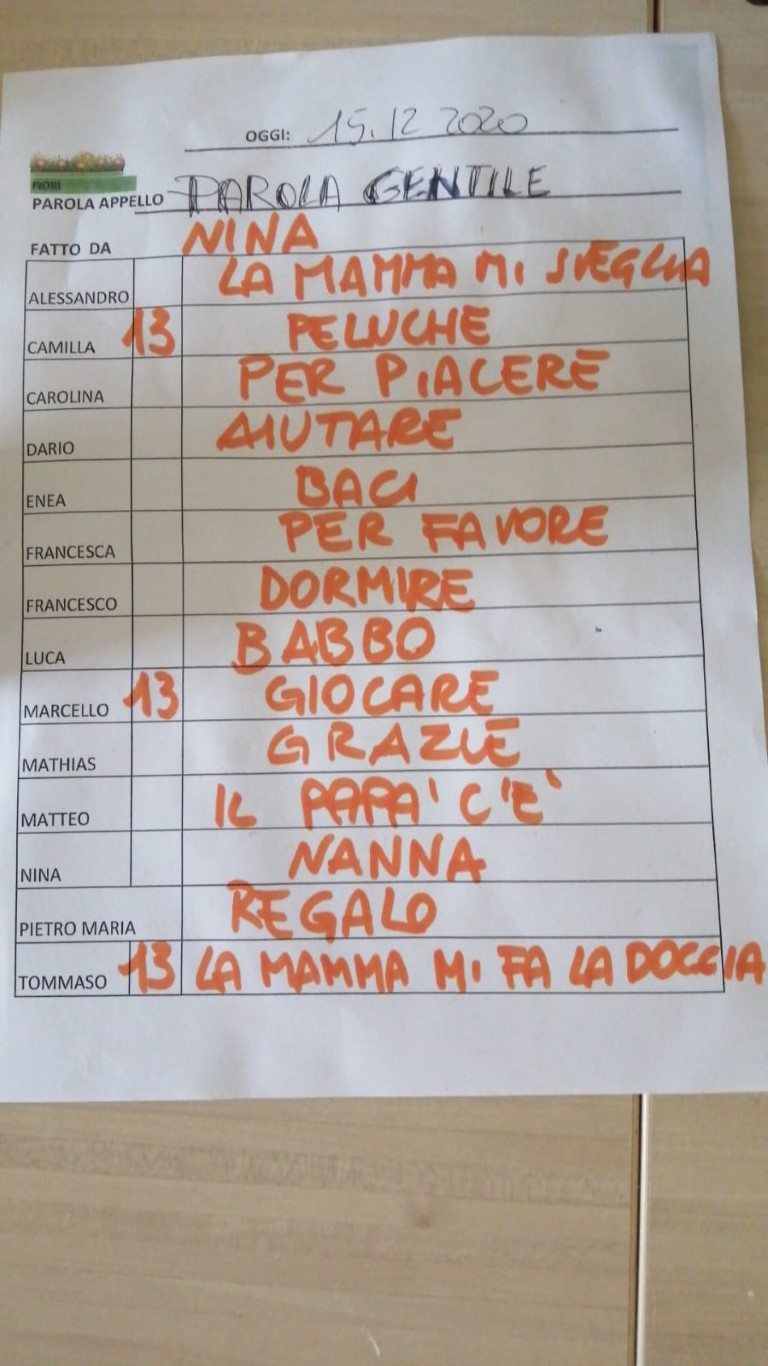 OGGI: 15.12.2020
FIORI
PAROLA APPELLO PAROLA GENTILE
FATTO DA NINA
ALESSANDRO LA MAMMA MI SVEGLIA
CAMILLA 13 PELUCHE
CAROLINA PER PIACERE
DARIO AIUTARE
ENEA BACI
FRANCESCA PER FAVORE
FRANCESCO DORMIRE
LUCA BABBO
MARCELLO 13 GIOCARE
MATHIAS GRAZIE
MATTEO IL PAPA' C'E'
NINA NANNA
PIETRO MARIA REGALO
TOMMASO 13 LA MAMMA MI FA LA DOCCIA